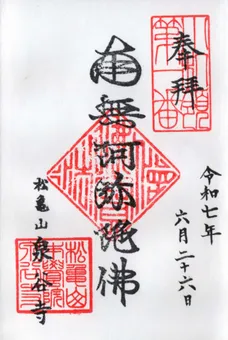 奉拝
令和七年
六月二十六日
南無阿弥陀佛
松亀山
泉谷寺